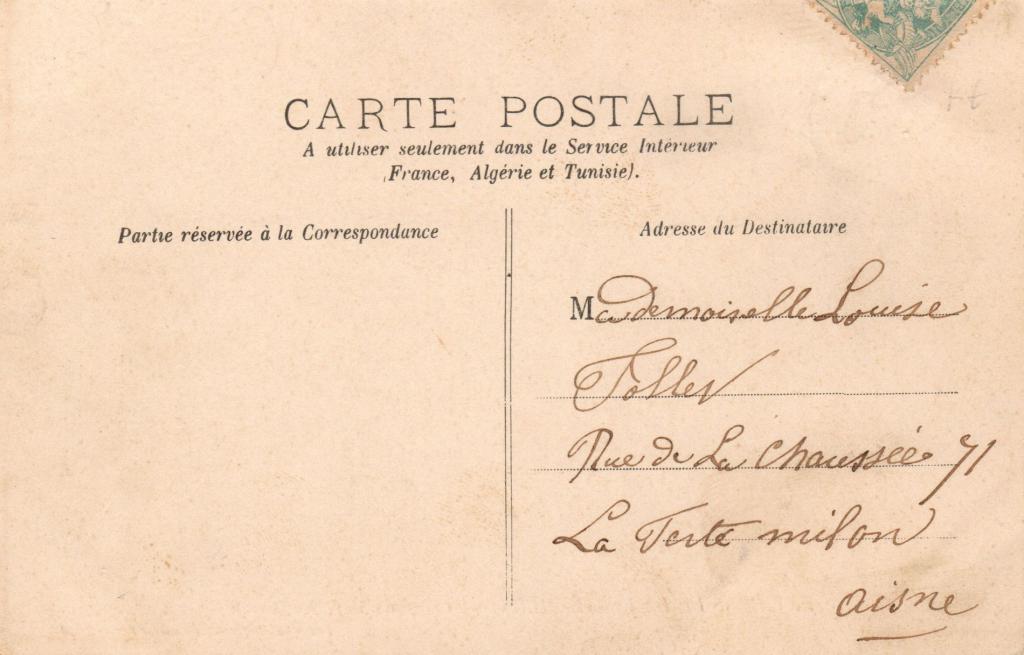 CARTE POSTALE
A utiliser seulement dans le Service Intérieur
(France, Algérie et Tunisie).
Partie réservée à la Correspondance
Adresse du Destinataire
Mademoiselle Louise
Rue de La Chaussée 71
La Ferté milon
aisne